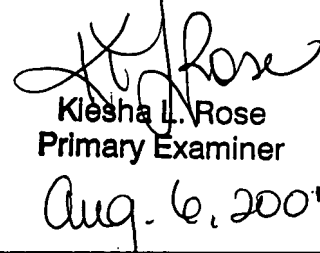 KLRose
Kiesha L. Rose
Primary Examiner
Aug. 6, 200